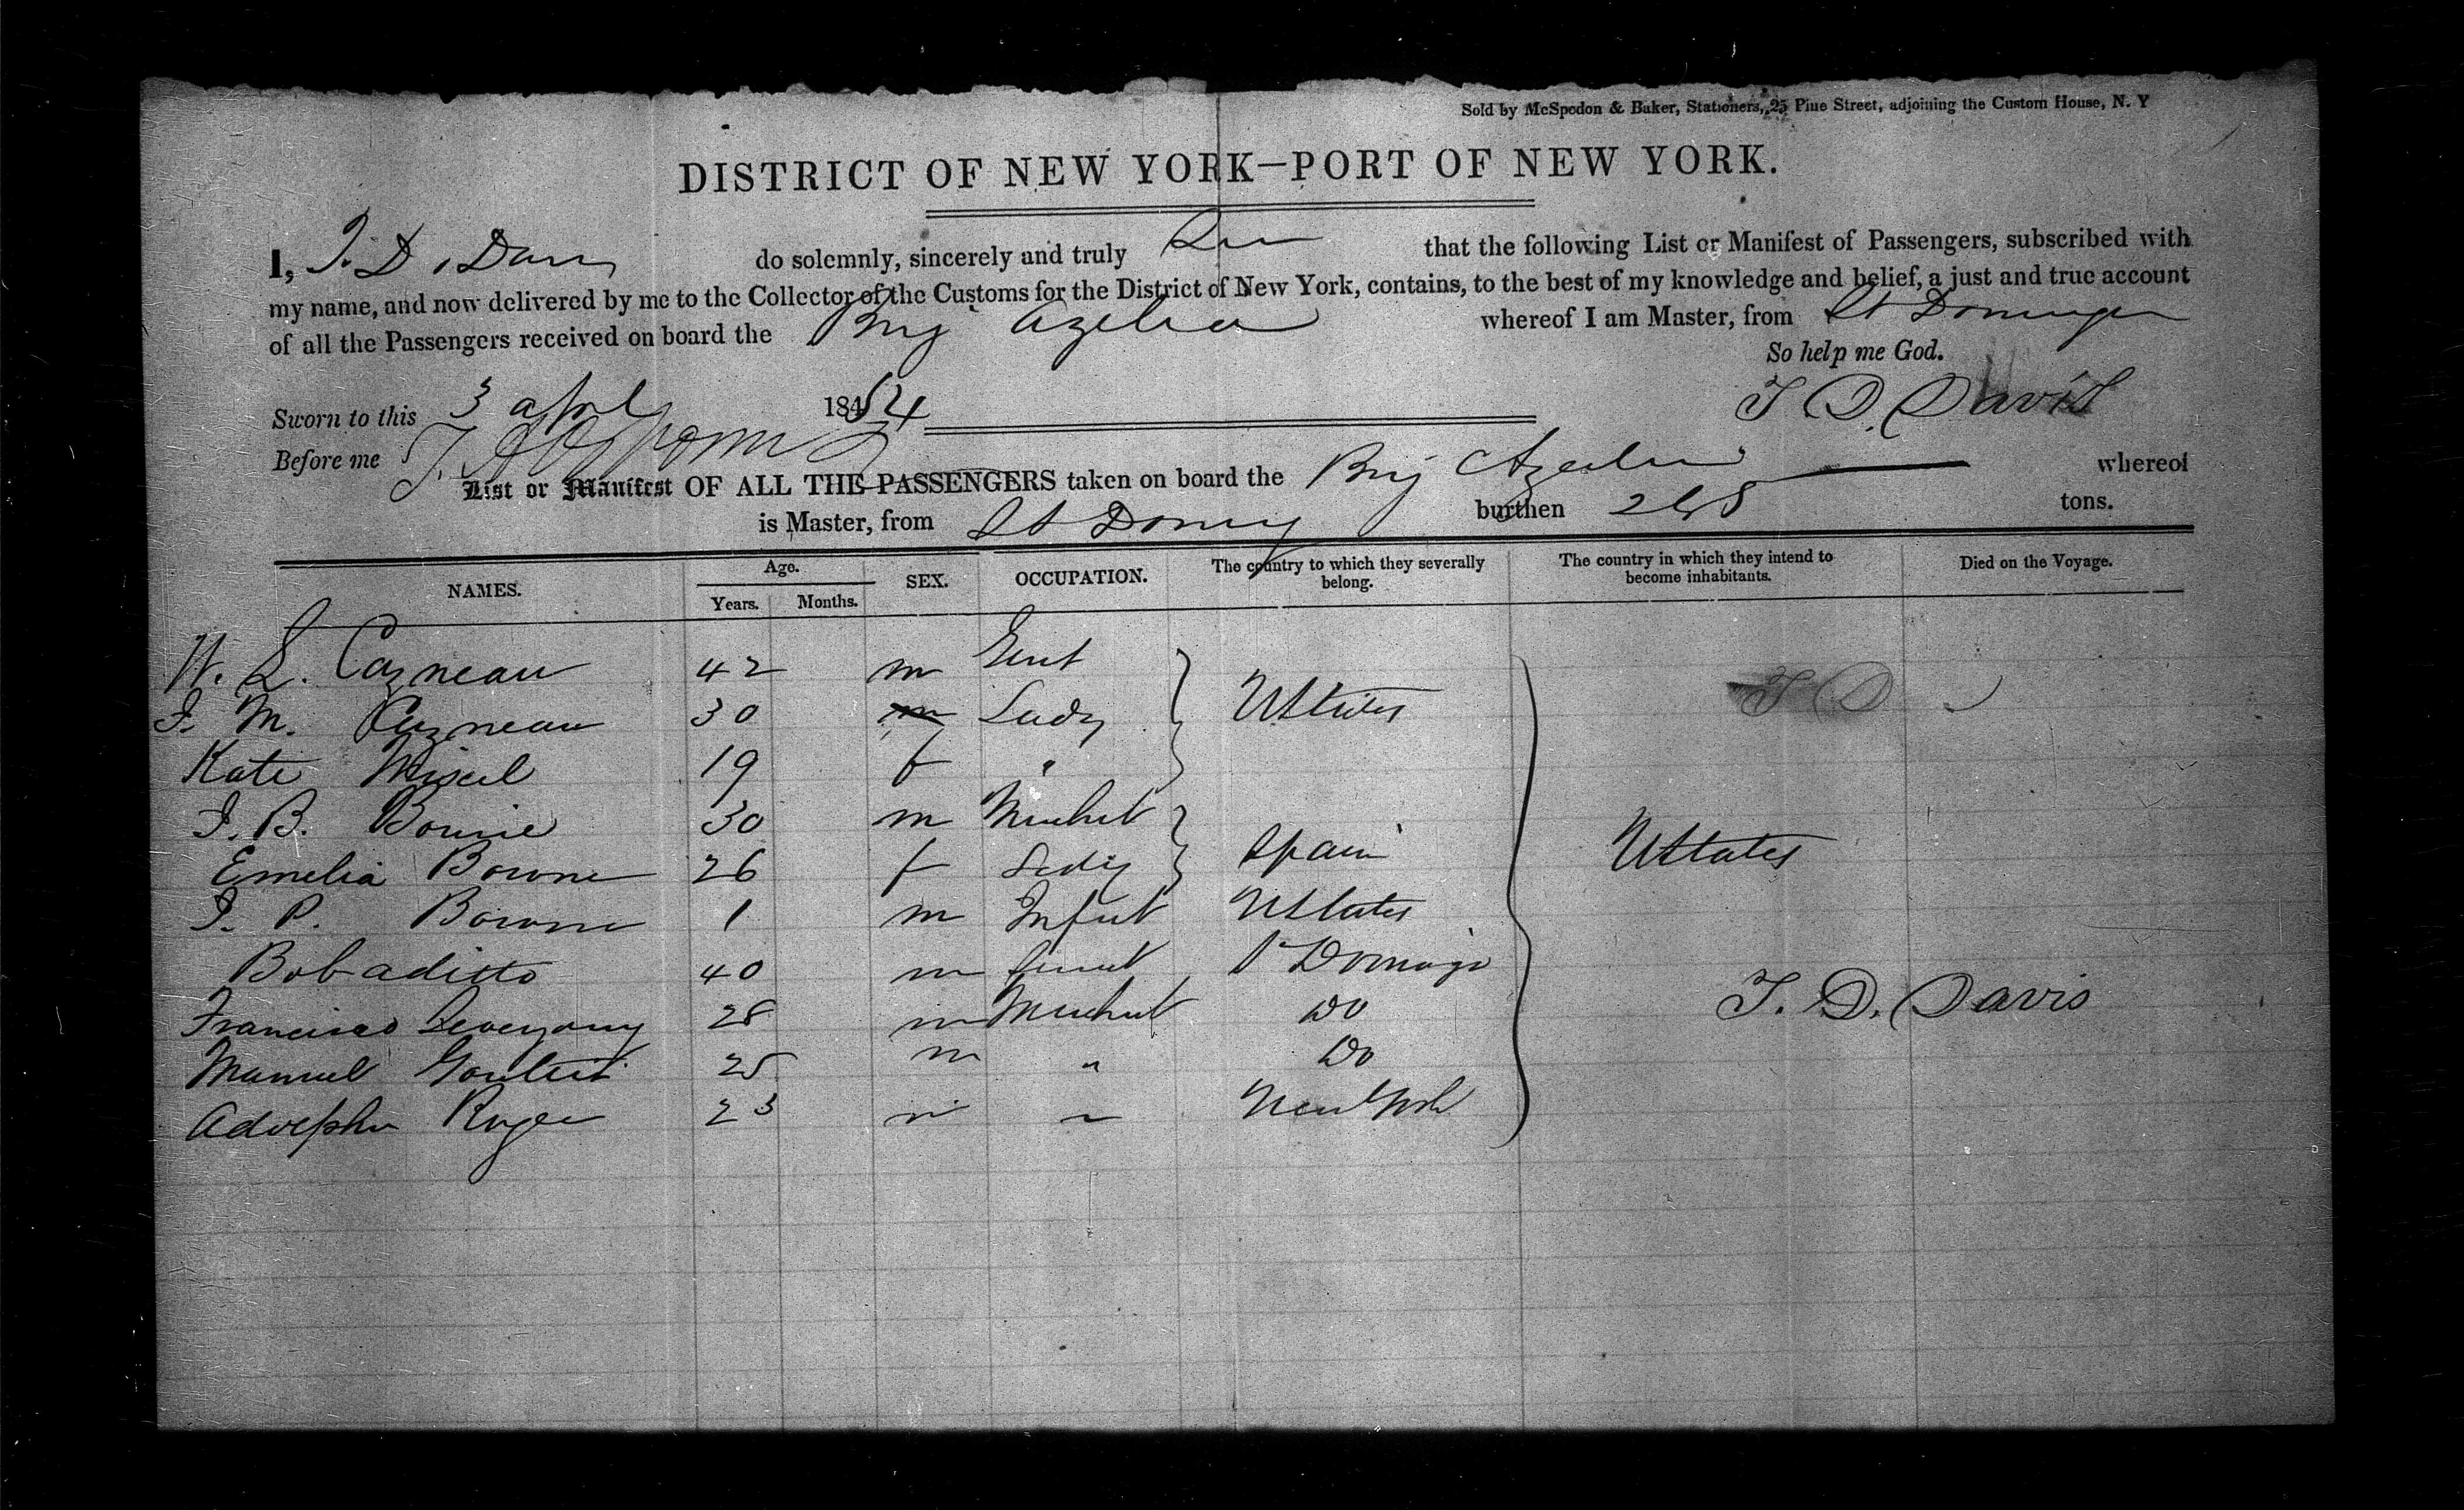 Sold by McSpedon & Baker, Stationers, 25 Pine Street, adjoining the Custom House, N. Y
DISTRICT OF NEW YORK—PORT OF NEW YORK.
I, T. D. Davis do solemnly, sincerely and truly that the following List or Manifest of Passengers, subscribed with
my name, and now delivered by me to the Collector of the Customs for the District of New York, contains, to the best of my knowledge and belief, a just and true account
of all the Passengers received on board the Brig Azelia whereof I am Master, from St Domingo
So help me God.
Sworn to this 3 april 1854
T D. Davis
Before me
List or Manifest OF ALL THE PASSENGERS taken on board the Brig Azelia whereof
is Master, from St Doming burthen tons.
NAMES. Age. Years. Months. SEX. OCCUPATION. The country to which they severally belong. The country in which they intend to become inhabitants. Died on the Voyage.
W. L. Cazneau 42 m Gent
J. M. Cazneau 30 m Lady UStates T D
Kate 19 f "
J. B. Bowne 30 m Merchat
Emelia Bowne 26 f Lady Spain UStates
J. P. Bowne 1 m Infat UStates
Bobaditto 40 m St Domingo
Francisco 28 m Merchat Do T. D. Davis
Manuel 25 m " Do
Adolphu 23 m " New York